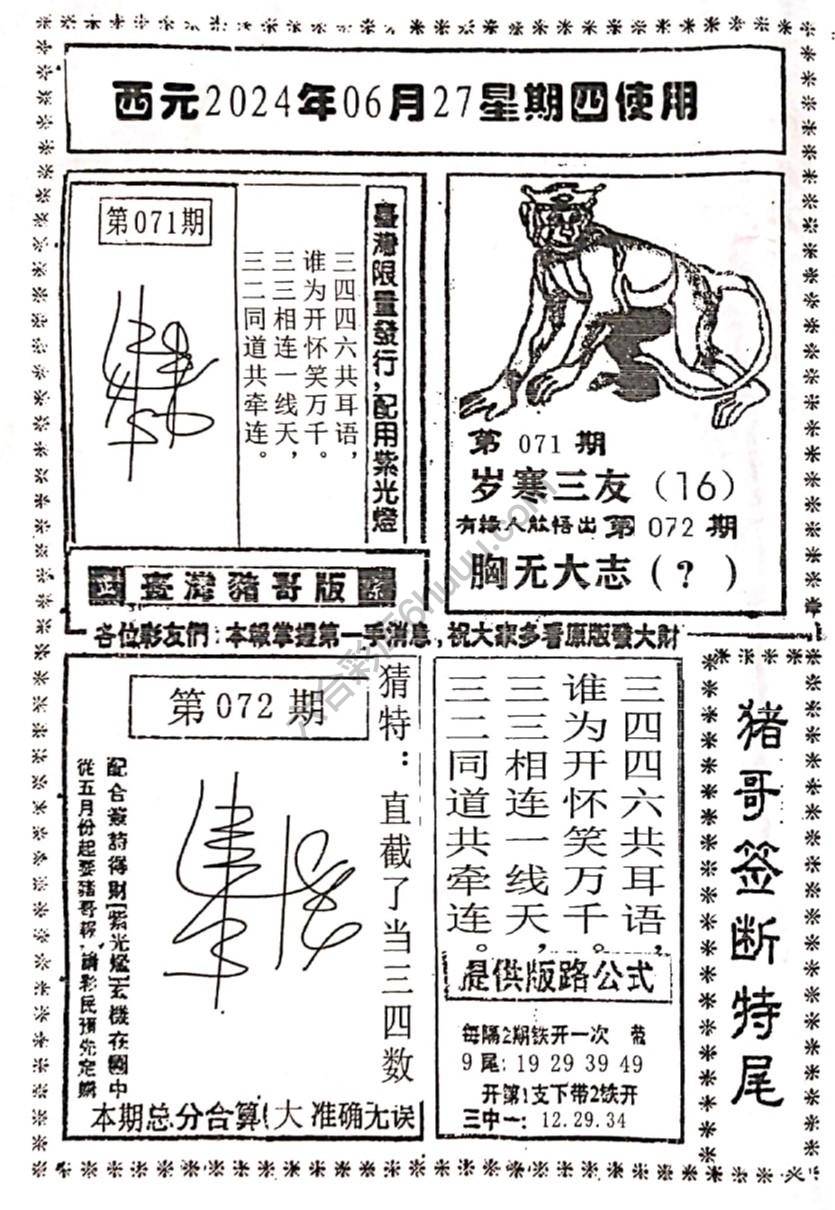 西元2024年06月27星期四使用
第071期
臺灣限量發行，配用紫光燈
三四四六共耳语，
谁为开怀笑万千。
三三相连一线天，
三二同道共牵连。
第 071 期
岁寒三友（16）
有緣人能悟出 第 072 期
胸无大志（？）
臺灣豬哥版
各位彩友們：本報掌握第一手消息，祝大家多看原版發大財
第 072 期
猜特：直截了当三四数
配合簽詩得財[紫光燈]玄機在圖中
從五月份起要豬哥報，請彩民預先定購
本期总分合算！大 准确无误
三四四六共耳语，
谁为开怀笑万千。
三三相连一线天，
三二同道共牵连。
提供版路公式
每隔2期铁开一次 带
9尾：19 29 39 49
开第1支下带2铁开
三中一：12.29.34
猪哥签断特尾